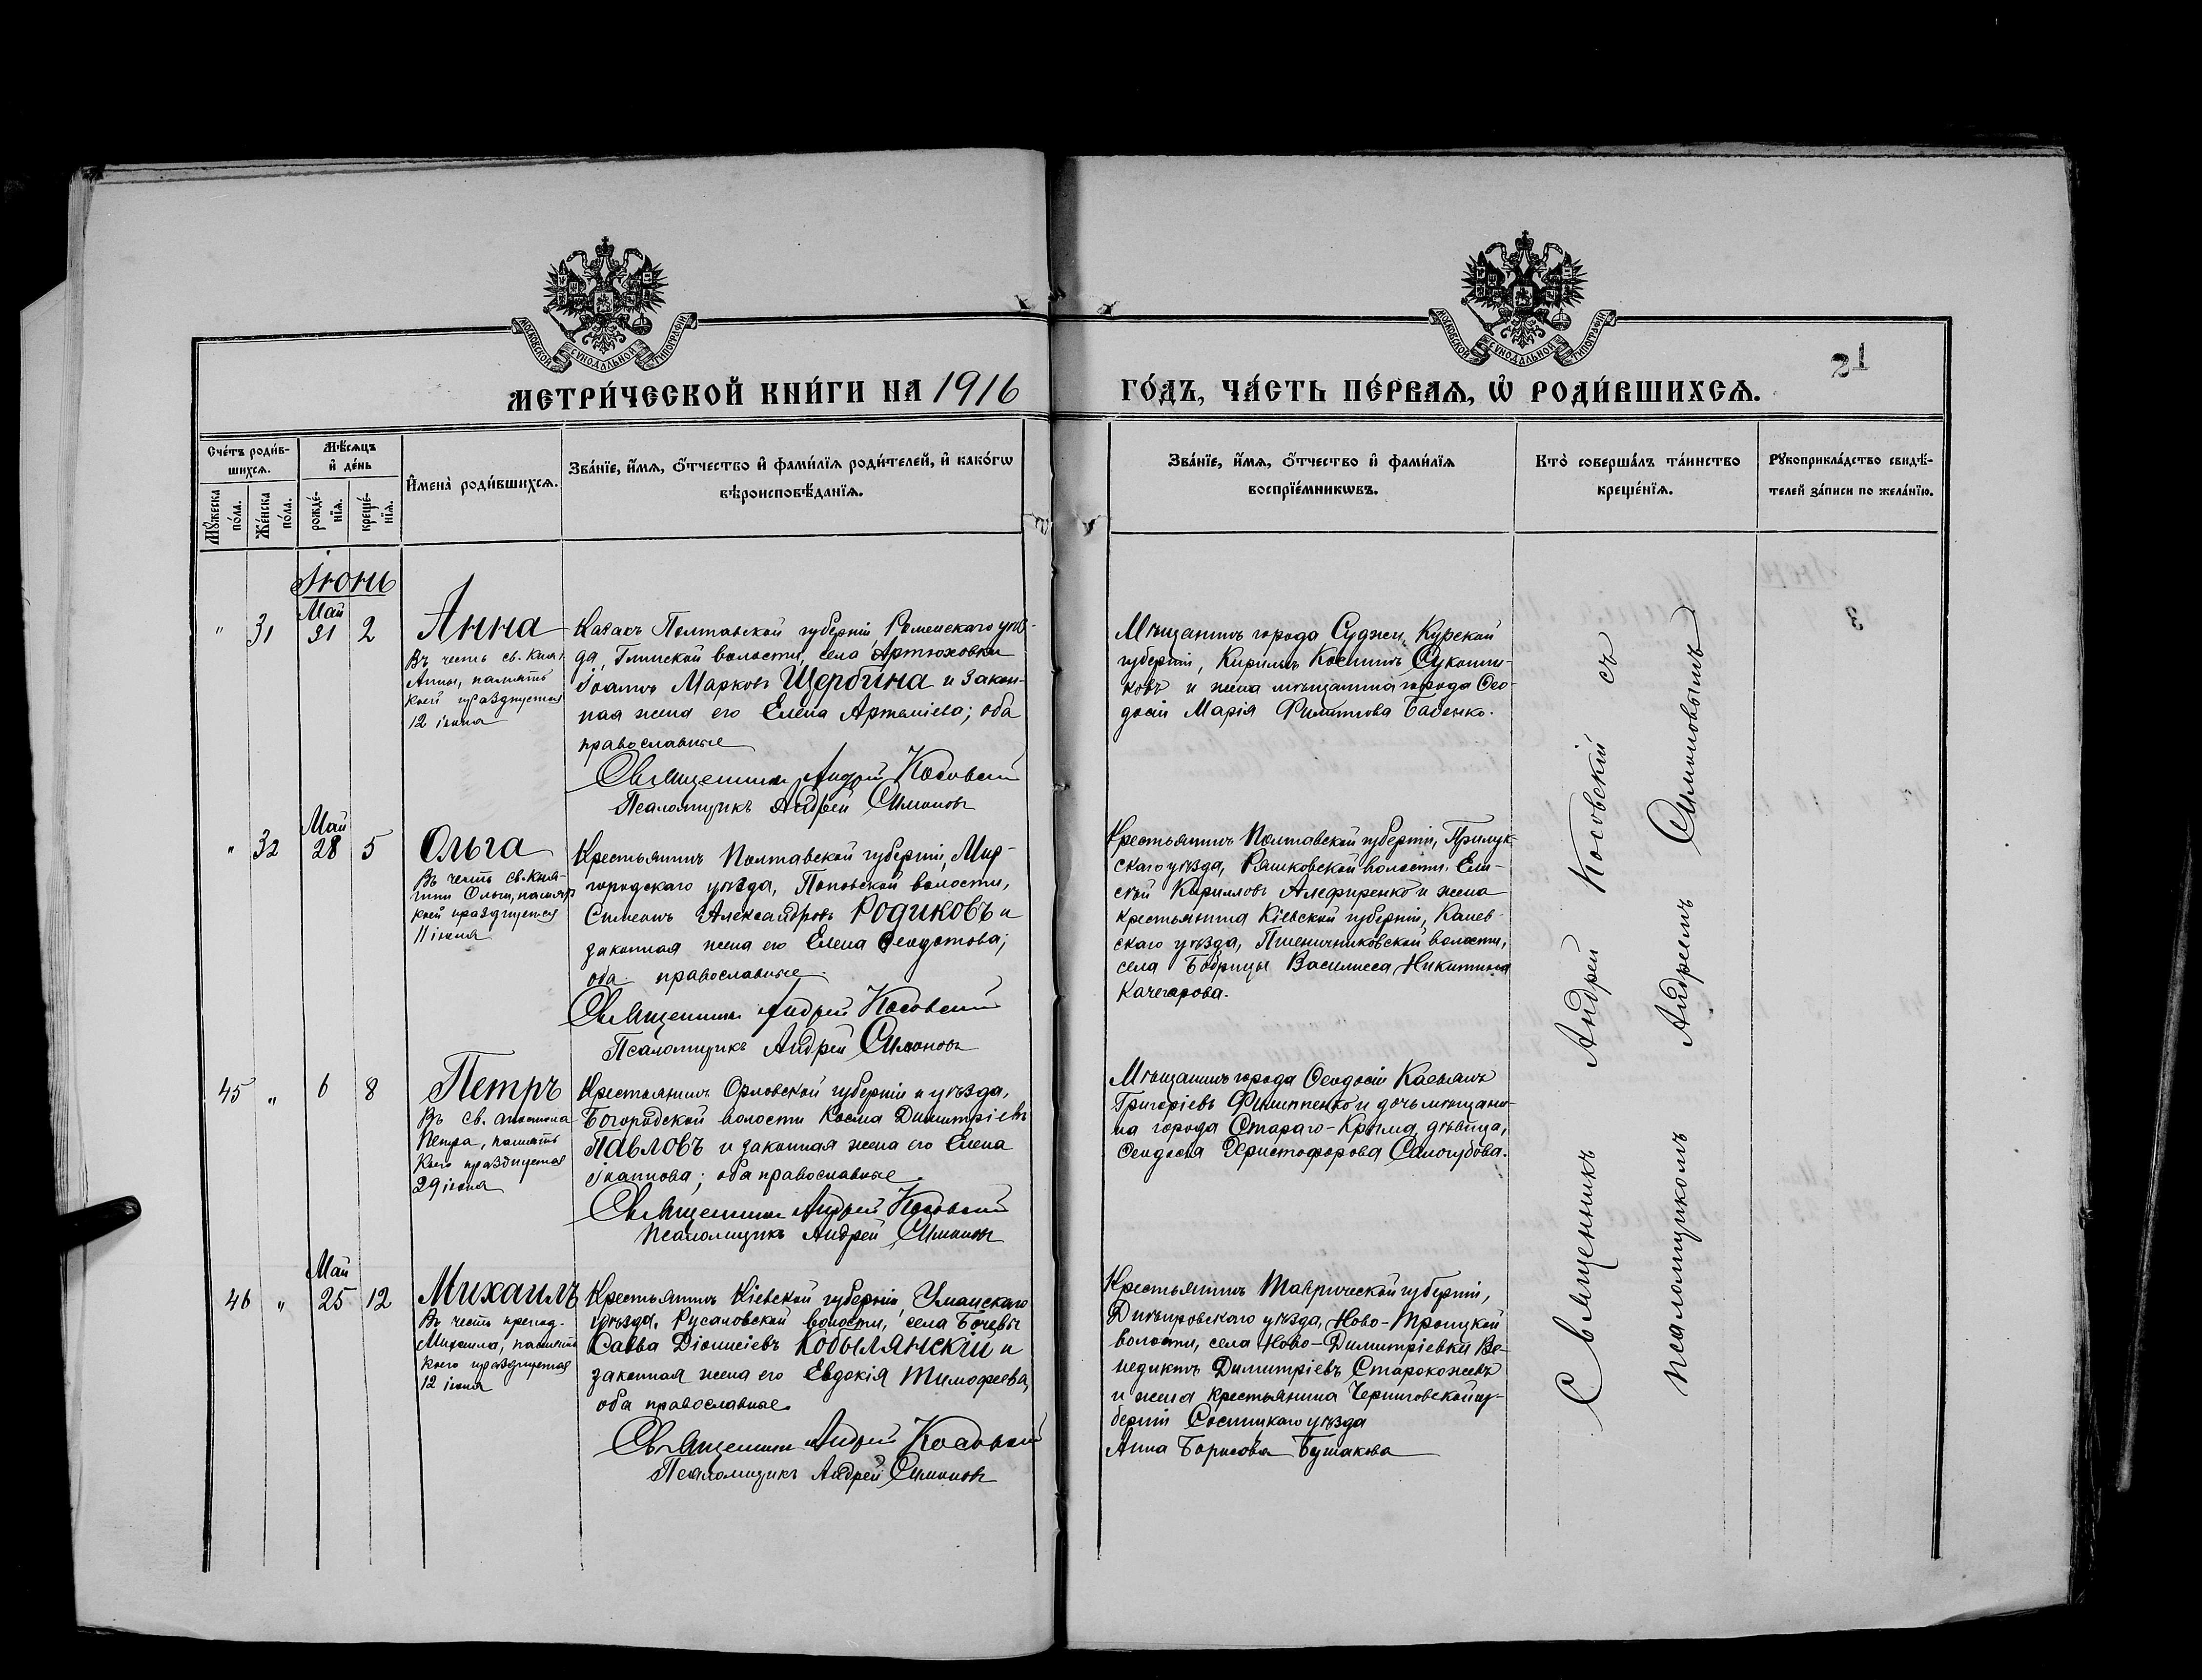 МОСКОВСКОЙ СѴНОДАЛЬНОЙ ТИПОГРАФІИ
МОСКОВСКОЙ СѴНОДАЛЬНОЙ ТИПОГРАФІИ
21
МЕТРИ́ЧЕСКОЙ КНИ́ГИ НА 1916
ГО́ДЪ, ЧА́СТЬ ПЕ́РВАѦ, Ѡ҆ РОДИ́ВШИХСѦ.
Сче́тъ роди́в-
шихсѧ.
Мѣ́сѧцъ
и҆ де́нь
И҆мена̀ роди́вшихсѧ.
Зва́нїе, и҆́мѧ, ѻ҆́тчество и҆ фами́лїѧ роди́телей, и҆ како́гѡ
вѣроисповѣ́данїѧ.
Мꙋ́жеска
по́ла.
Же́нска
по́ла.
рожде́-
нїѧ.
креще́-
нїѧ.
Зва́нїе, и҆́мѧ, ѻ҆́тчество и҆ фами́лїѧ
воспрїе́мникѡвъ.
Кто̀ соверша́лъ та́инство
креще́нїѧ.
Рꙋкоприкла́дство свидѣ́-
телей за́писи по жела́нїю.
Іюнь
Май
" 31 31 2
Анна
Въ честь св. Княг.
Анны, память
коей празднуется
12 іюня
Казакъ Полтавской губерніи, Роменскаго уѣз-
да, Глинской волости, села Артюховки
Іоаннъ Марковъ Щербина и закон-
ная жена его Елена Артеміева; оба
православные
Священникъ Андрей Косовскій
Псаломщикъ Андрей Симоновъ
Мѣщанинъ города Суджи, Курской
губерніи, Кириллъ Косминъ
и жена мѣщанина города Ѳео-
досіи Марія Филиппова Бабенко.
Май
" 32 28 5
Ольга
Въ честь св. Кня-
гини Ольги, память
коей празднуется
11 іюня
Крестьянинъ Полтавской губерніи, Мир-
городскаго уѣзда, Поповской волости,
Симеонъ Александровъ Родиковъ и
законная жена его Елена Ѳеодотова;
оба православные.
Священникъ Андрей Косовскій
Псаломщикъ Андрей Симоновъ
Крестьянинъ Полтавской губерніи, Прилук-
скаго уѣзда, Рашковской волости, Ели-
сѣй Кирилловъ Алефиренко и жена
крестьянина Кіевской губерніи, Канев-
скаго уѣзда, Пшеничниковской волости,
села Бобрицы Василисса Никитина
Качегарова.
45 " 6 8
Петръ
Въ св. апостола
Петра, память
коего празднуется
29 іюня
Крестьянинъ Орловской губерніи и уѣзда,
Богородской волости Косма Димитріевъ
Павловъ и законная жена его Елена
Іоаннова; оба православные
Священникъ Андрей Косовскій
Псаломщикъ Андрей Симоновъ
Мѣщанинъ города Ѳеодосіи Касьянъ
Григоріевъ Филиппенко и дочь мѣщани-
на города Стараго-Крыма, дѣвица,
Ѳеодосія Христофорова Самогубова.
Май
46 " 25 12
Михаилъ
Въ честь препод.
Михаила, память
коего празднуется
12 іюня
Крестьянинъ Кіевской губерніи, Уманскаго
уѣзда, Русаловской волости, села
Савва Діонисіевъ Кобылянскій и
законная жена его Евдокія Тимофеева,
оба православные
Священникъ Андрей Косовскій
Псаломщикъ Андрей Симоновъ
Крестьянинъ Таврической губерніи,
Днѣпровскаго уѣзда, Ново-Троицкой
волости, села Ново-Димитріевки Ве-
недиктъ Димитріевъ Старокожевъ
и жена крестьянина Черниговской гу-
берніи Сосницкаго уѣзда
Анна Борисова
Священникъ Андрей Косовскій съ
псаломщикомъ Андреемъ Симоновымъ